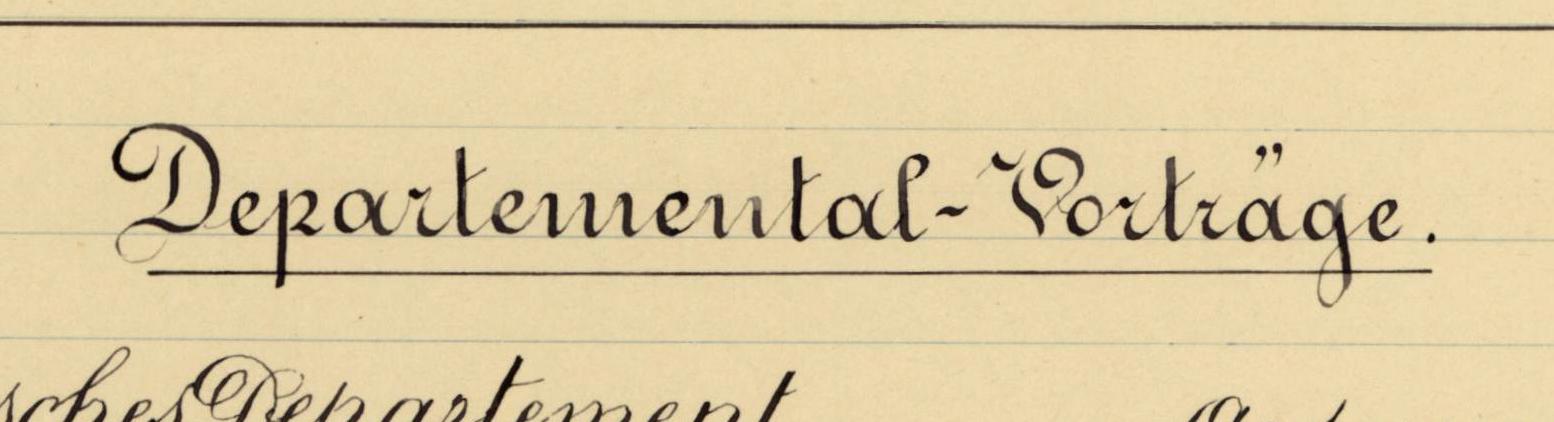 Departemental-Vorträge.
sches Departement